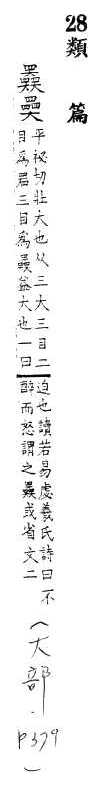 28類篇
𡚤奰
平祕切壯大也从三大三目二
目為𥇛三目為𡚤益大也一曰
迫也讀若易虙羲氏詩曰不
醉而怒謂之𡚤或省文二
（大部．P379）